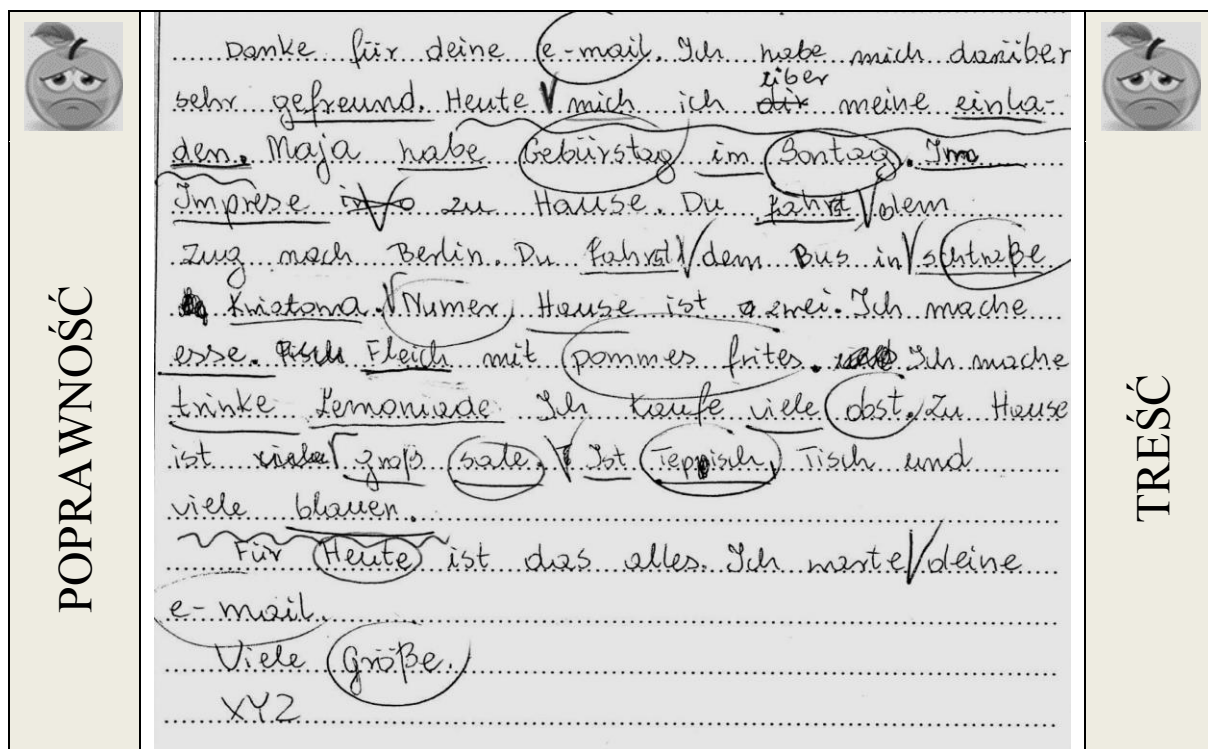 POPRAWNOŚĆ
Danke für deine e-mail. Ich habe mich darüber
sehr gefreund. Heute mich ich über meine einla-
den. Maja habe Gebürstag im Sontag. Im
Imprese zu Hause. Du fahrst dem
Zug nach Berlin. Du fahrst dem Bus in schtraße
Kwiatowa. Numer Hause ist zwei. Ich mache
esse. Fleich mit pommes frites. Ich mache
trinke Lemoniade Ich kaufe viele obst. Zu Hause
ist groß sale. Ist Teppisch, Tisch und
viele blauen.
Für Heute ist das alles. Ich warte deine
e-mail.
Viele Größe.
XYZ
TREŚĆ